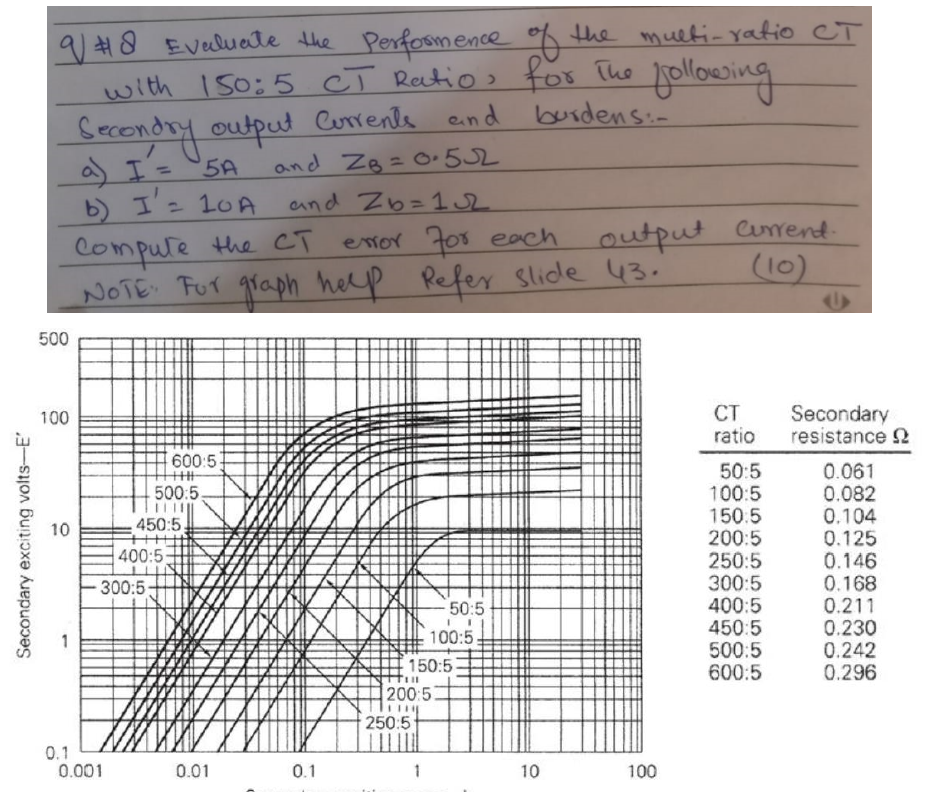 Q#8 Evaluate the Performence of the multi-ratio CT
with 150:5 CT Ratio, for the following
Secondry output Currents and burdens:-
a) I' = 5A and ZB = 0.5Ω
b) I' = 10A and Zb = 1Ω
Compute the CT error for each output Current.
NOTE: For graph help Refer slide 43. (10)
500
100
10
1
0.1
Secondary exciting volts—E'
600:5
500:5
450:5
400:5
300:5
50:5
100:5
150:5
200:5
250:5
0.001 0.01 0.1 1 10 100
CT ratio Secondary resistance Ω
50:5 0.061
100:5 0.082
150:5 0.104
200:5 0.125
250:5 0.146
300:5 0.168
400:5 0.211
450:5 0.230
500:5 0.242
600:5 0.296